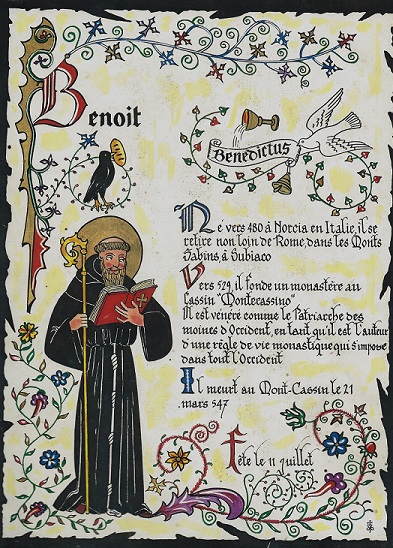 Benoit
Benedictus
Né vers 480 à Norcia en Italie, il se
retire non loin de Rome, dans les Monts
Sabins, à Subiaco
Vers 529, il fonde un monastère au
Cassin "Montecassino"
Il est vénéré comme le Patriarche des
moines d'Occident, en tant qu'il est l'auteur
d'une règle de vie monastique qui s'impose
dans tout l'Occident
Il meurt au Mont-Cassin le 21
mars 547
Fête le 11 juillet